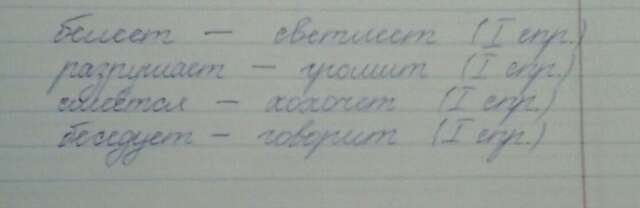 белеет — светлеет (I спр.)
разрушает — громит (I спр.)
смеётся — хохочет (I спр.)
беседует — говорит (I спр.)